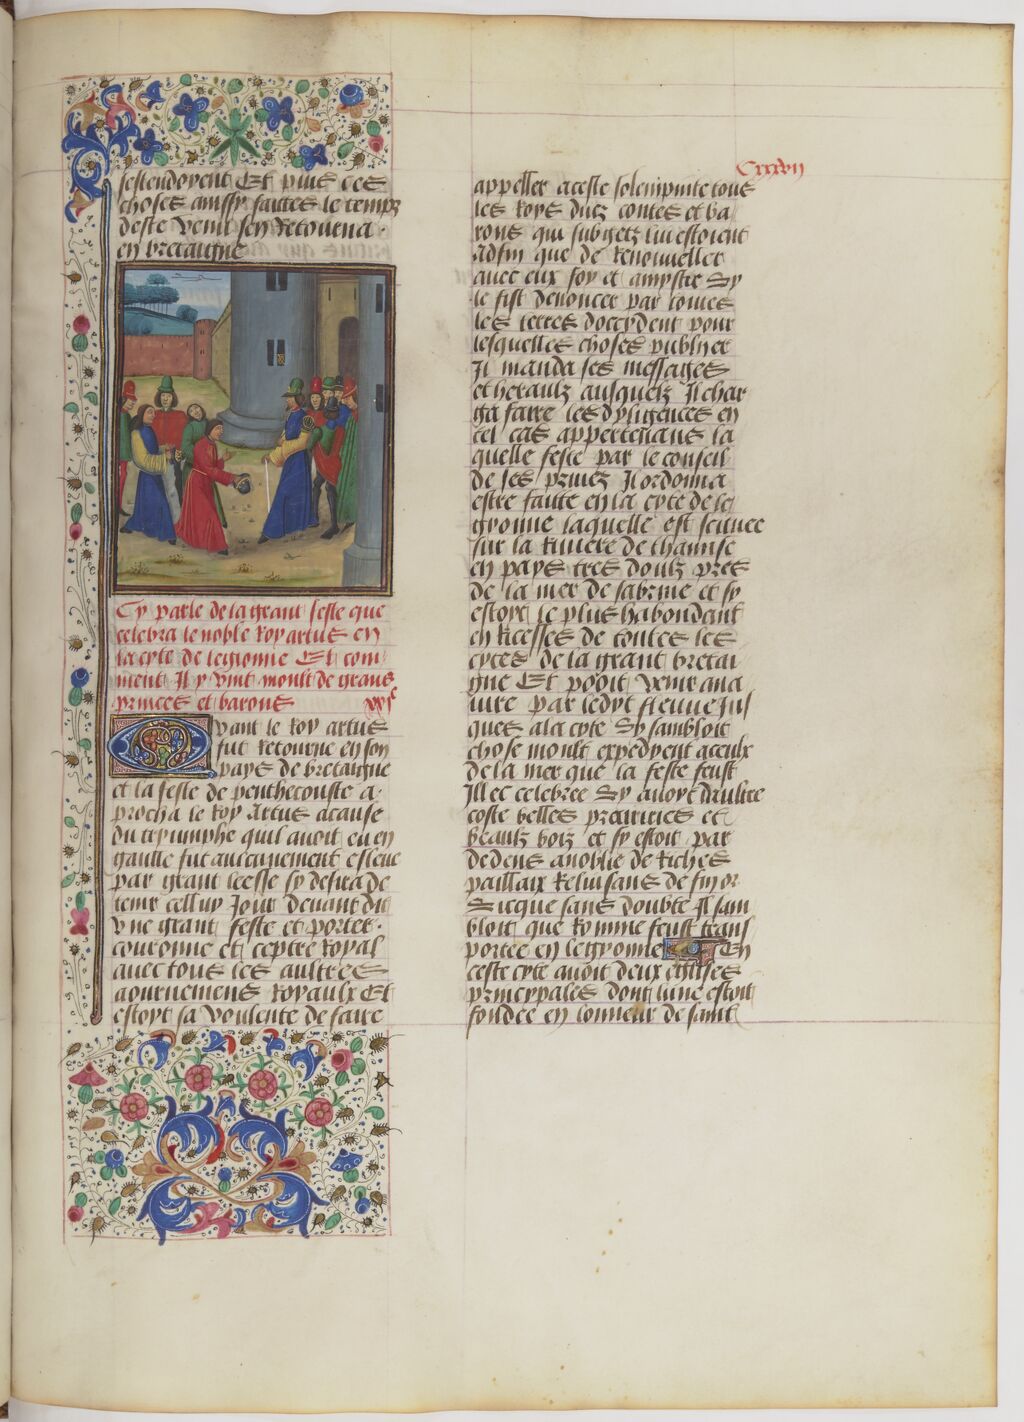 Cxxxvii
sestendoyent Et puis ces
choses ainssy faictes le temps
deste venu sen Retourna
en bretaigne
Cy parle de la grant feste que
celebra le noble Roy artus en
la cyte de legionne Et com-
ment Il y vint moult de grans
princes et barons
Quant le Roy artus
fut Retourne en son
pays de bretaigne
et la feste de penthecouste a-
procha le Roy Artus a cause
du tryumphe quil auoit eu en
gaulle fut aucunement esleue
par grant leesse sy desira de
tenir celluy Jour deuant dit
vne grant feste et porter
couronne et ceptre Royal
auec tous les aultres
aournemens Royaulx Et
estoyt sa voulente de faire
appeller a ceste solempnite tous
les Roys ducz contes et ba-
rons qui subgetz luy estoient
Adfin que de Renouueller
auec eux foy et amystie Sy
le fist denoncer par toutes
les terres doccydent pour
lesquelles choses publyer
Il manda ses messages
et heraulz ausquelz Il char-
ga faire les dyligences en
tel cas appertenans la
quelle feste par le conseil
de ses princez Il ordonna
estre faitte en la cyte de le-
gyonne laquelle est scituee
sur la Riuiere de thamise
en pays tres doulz pres
de la mer de sabrine et sy
estoyt le plus habondant
en Ricesses de toutes les
cytes de la grant bretai-
gne Et pooit venir na-
uire par ledyt fleuue Jus-
ques a la cyte Sy sambloit
chose moult expedyent a ceulx
de la mer que la feste feust
Illec celebree Sy auoyt daultre
coste belles prairies et
beaulz boiz et sy estoit par
dedens anoblie de Riches
pallaix Reluisans de fin or
Sicque sans doubte Il sam-
bloit que Romme feust trans-
portee en legyonne En
ceste cyte auoit deux eglises
princypales dont lune estoit
fondee en lonneur de saint